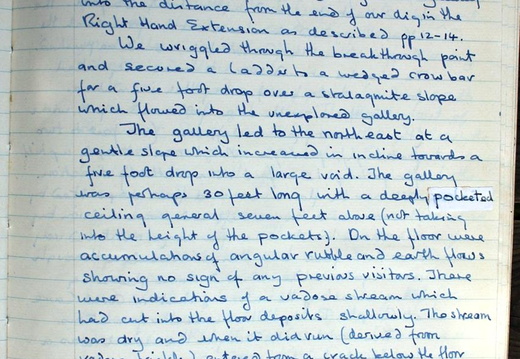 into the distance from the end of our dig in the
Right Hand Extension as described pp 12-14.
We wriggled through the breakthrough point
and secured a ladder to a wedged crowbar
for a five foot drop over a stalagmite slope
which flowed into the unexplored gallery.
The gallery led to the northeast at a
gentle slope which increased in incline towards a
five foot drop into a large void. The gallery
was perhaps 30 feet long with a deeply pocketed
ceiling general seven feet above (not taking
into the height of the pockets). On the floor were
accumulations of angular rubble and earth flows
showing no sign of any previous visitors. There
were indications of a vadose stream which
had cut into the floor deposits shallowly. The stream
was dry and when it did run (derived from
vadose trickle) entered from a crack below the floor